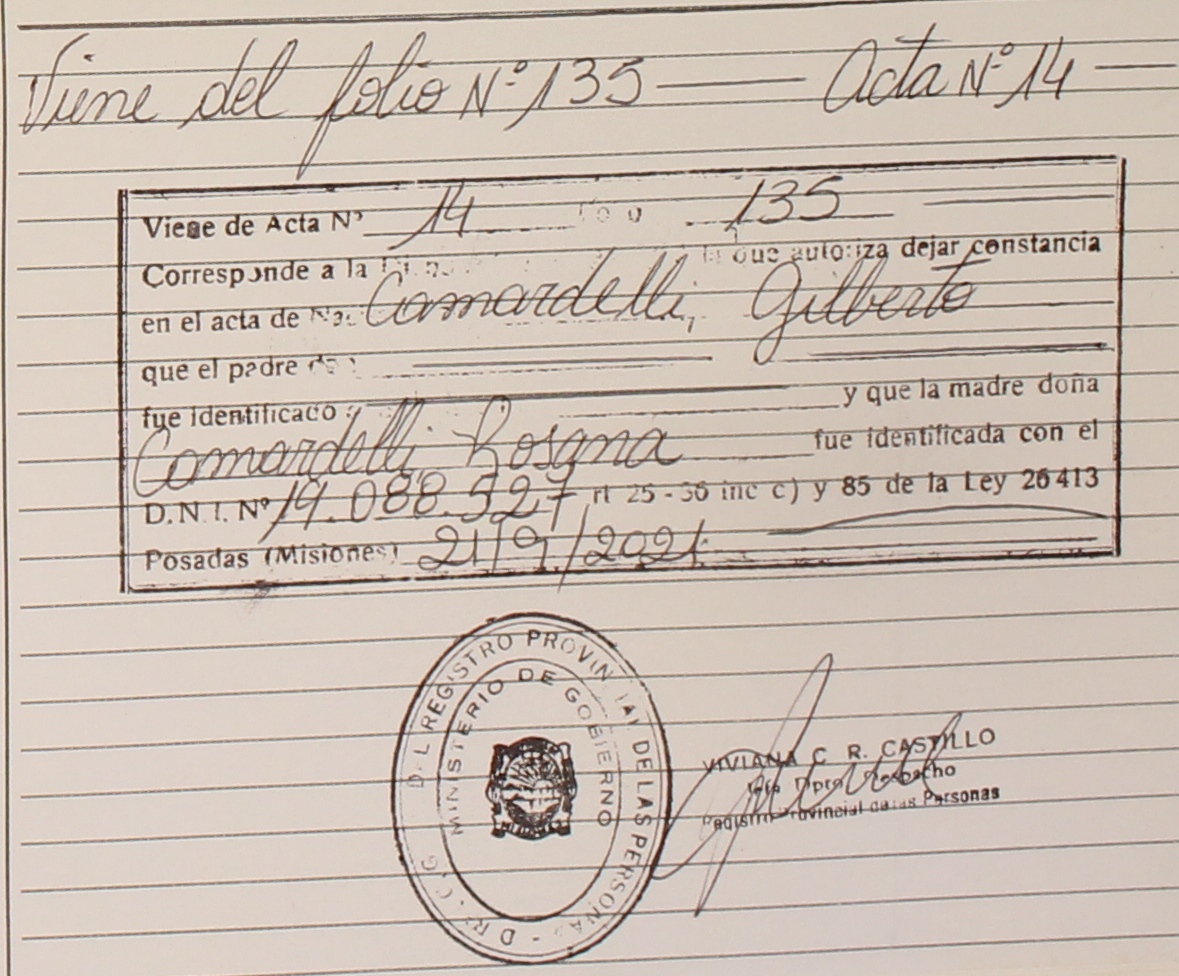 Viene del folio N° 135 — Acta N° 14 —
Viene de Acta N° 14 135
Corresponde a la que autoriza dejar constancia
en el acta de Camardelli, Gilberto
que el padre
fue identificado y que la madre doña
Camardelli Rosana fue identificada con el
D.N.I. N° 19.088.527 rt 25 - 36 inc c) y 85 de la Ley 26413
Posadas (Misiones) 21/9/2021
DEL REGISTRO PROVINCIAL DE LAS PERSONAS
MINISTERIO DE GOBIERNO
VIVIANA C. R. CASTILLO
Dpto. Despacho
Registro Provincial de las Personas